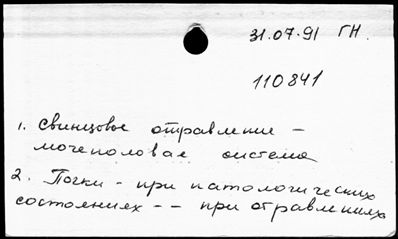 31.07.91 ГН.
110841
1. Свинцовое отравление –
мочеполовая система
2. Почки – при патологических
состояниях -- при отравлениях